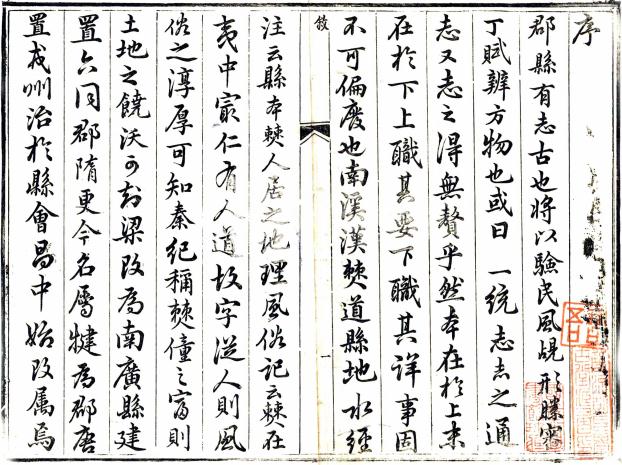 序
郡縣有志古也將以驗民風覘形勝審
丁賦辨方物也或曰一統志志之通
志又志之得無贅乎然本在於上末
在於下上職其要下職其詳事固
不可偏廢也南溪漢僰道縣地水經
敘
一
注云縣本僰人居之地理風俗記云僰在
夷中㝡仁有人道故字從人則風
俗之淳厚可知秦紀稱僰僮之富則
土地之饒沃可知梁改為南廣縣建
置六同郡隋更今名屬犍為郡唐
置戎州治於縣會昌中始改屬焉